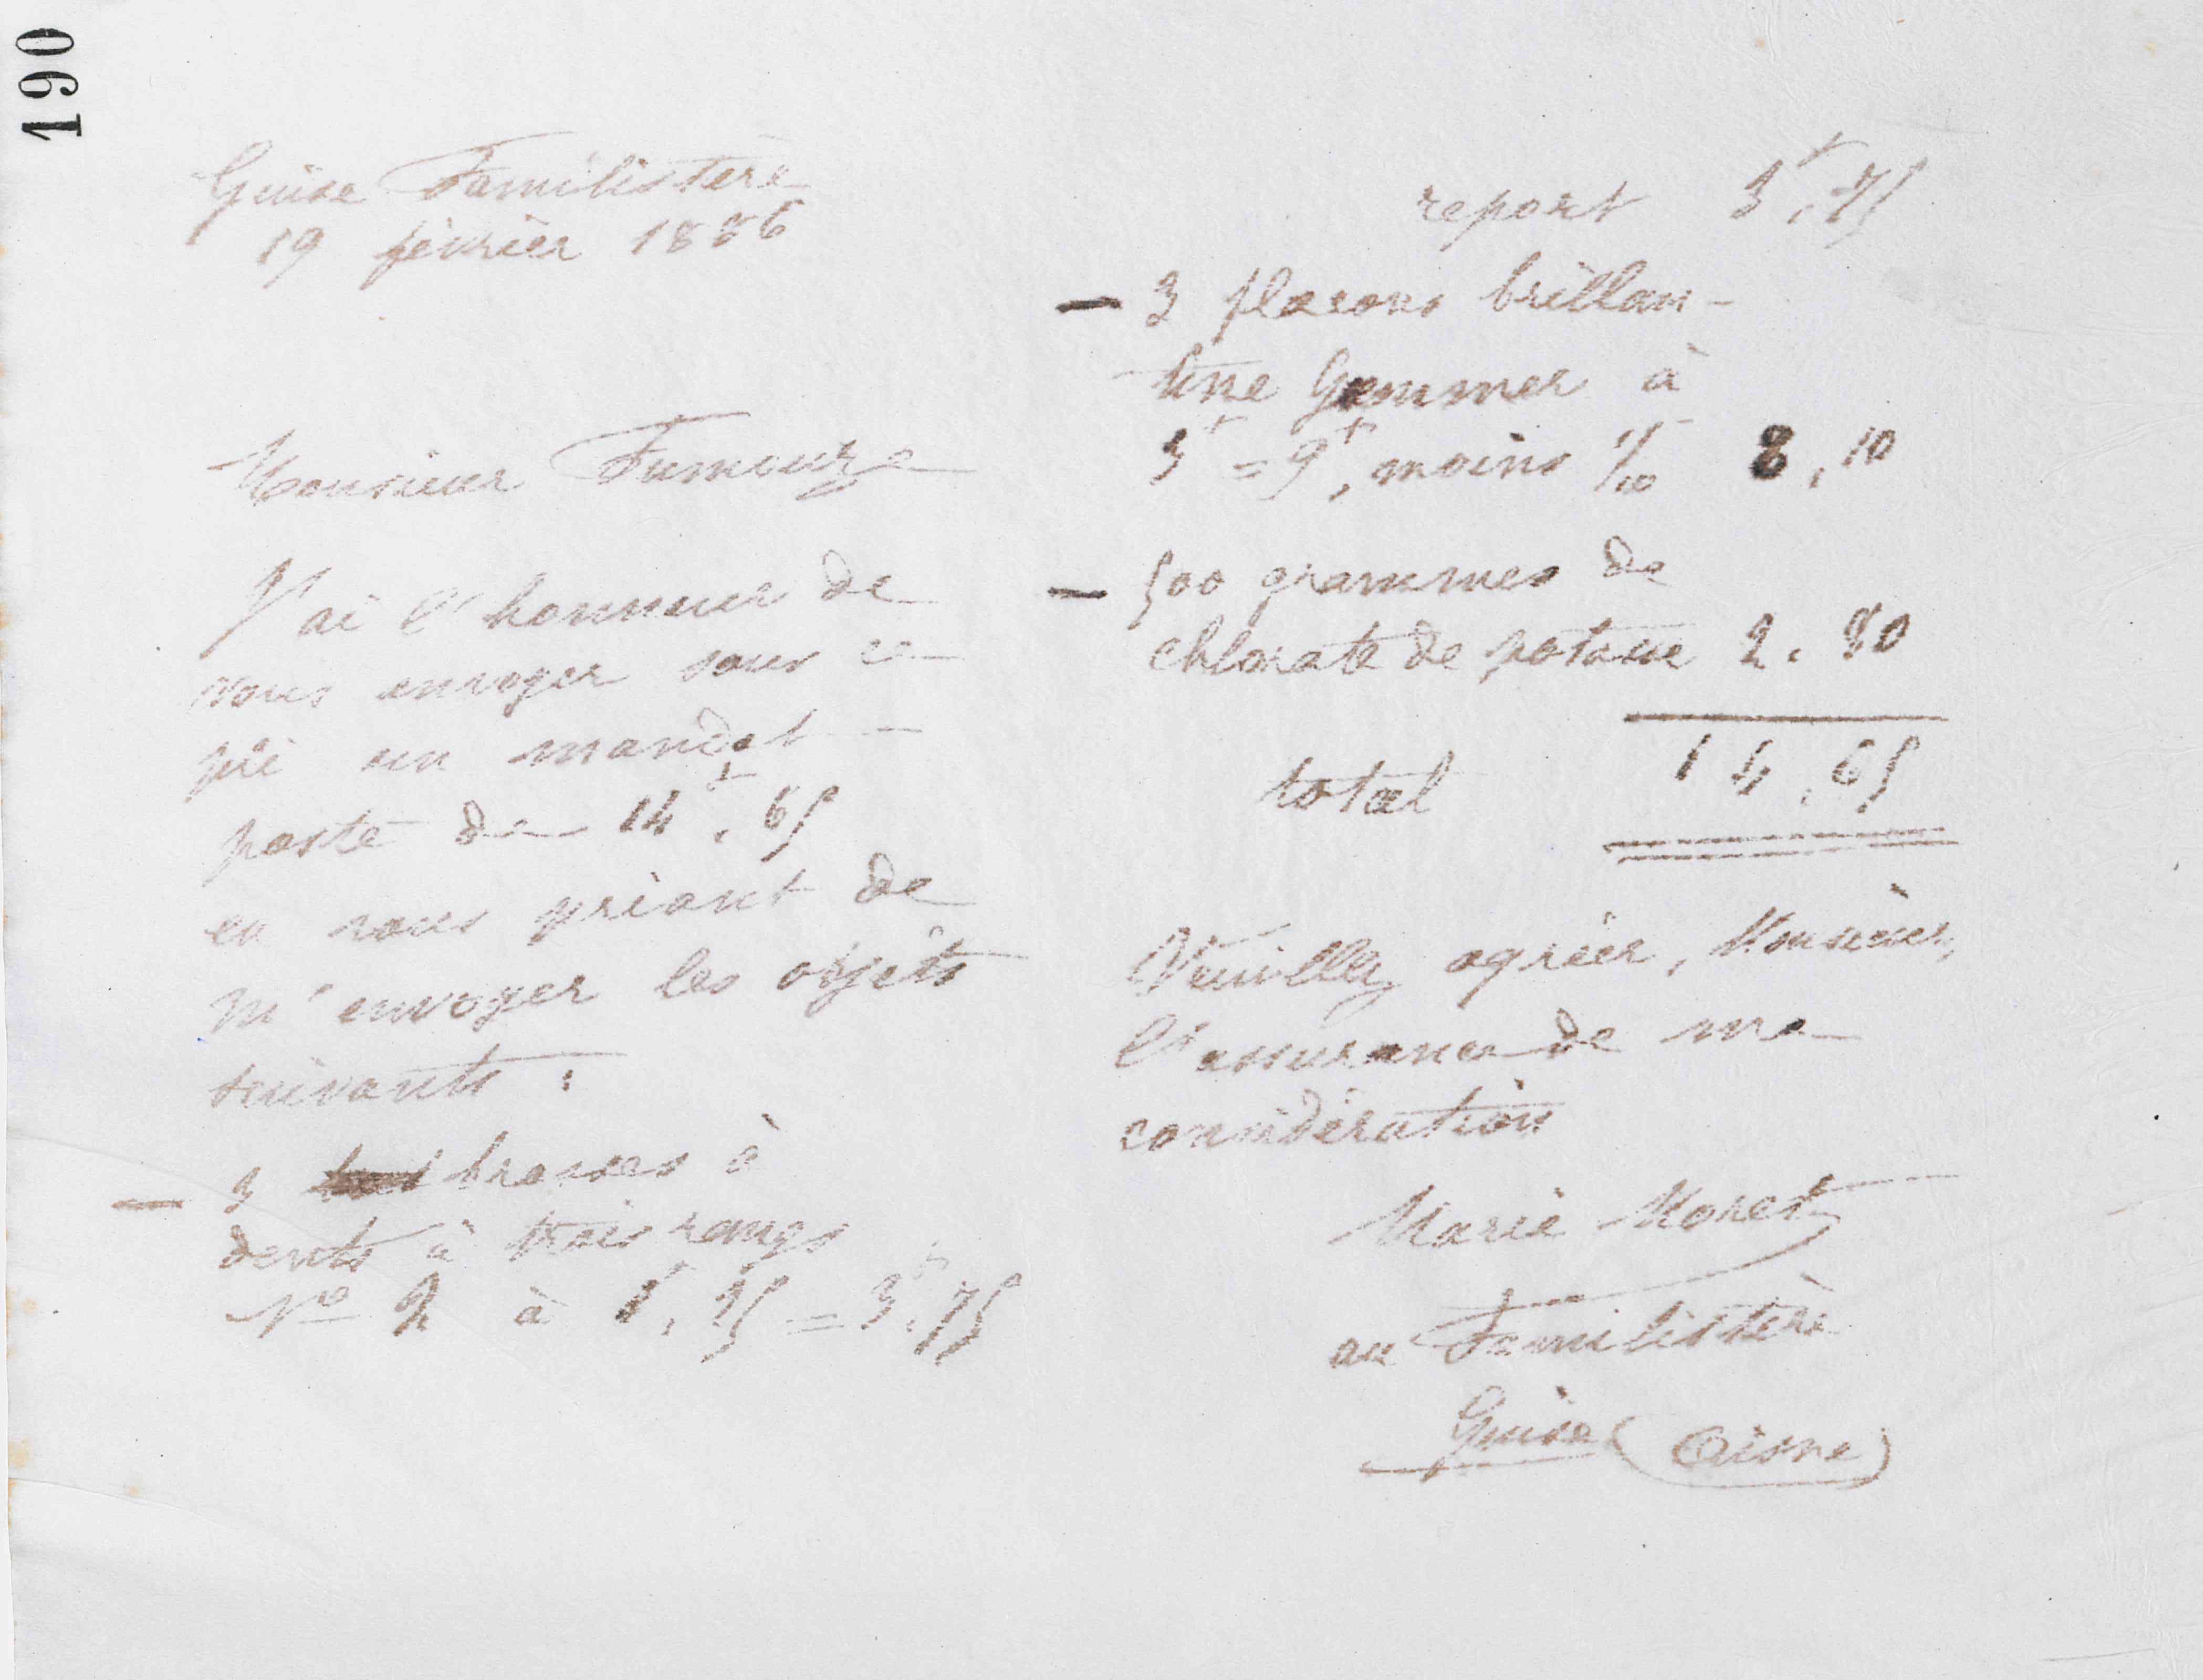 190
Guise Familistère
19 février 1886
Monsieur Fumouze
J'ai l'honneur de
vous envoyer sous ce
pli un mandat
poste de 14f,65
en vous priant de
m'envoyer les objets
suivants :
— 3 brosses à
dents à trois rangs
No 2 à 1,25 = 3f,75
report 3f,75
— 3 flacons brillan-
tine Gemmer à
3f = 9f, moins 1/10 8,10
— 500 grammes de
chlorate de potasse 2.80
total 14,65
Veuillez agréer, Monsieur,
l'assurance de ma
considération
Marie Moret
au Familistère
Guise (Aisne)